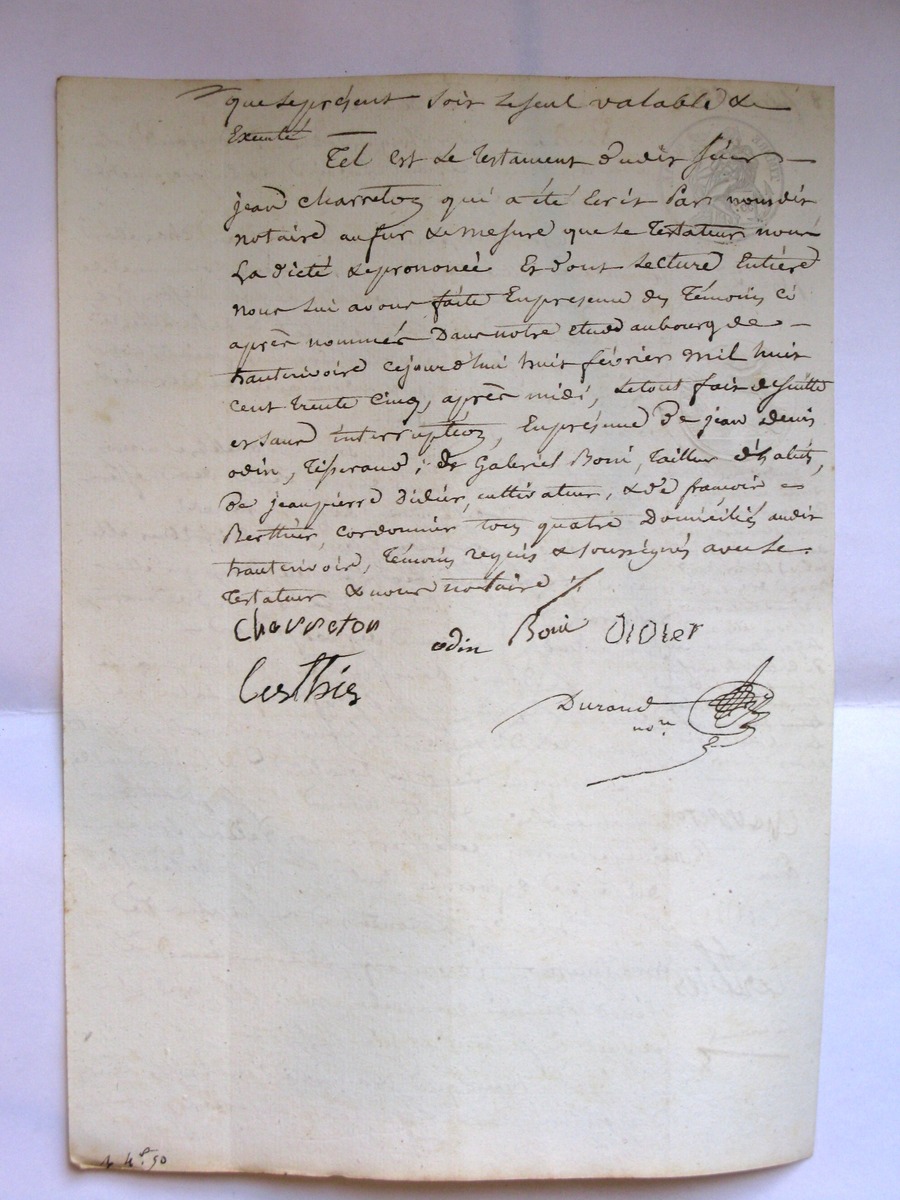 que le présent soit le seul valable &
Exécuté
Tel est le testament dudit sieur
jean Charreton qui a été Ecrit Par nousdit
notaire au fur & mesure que le Testateur nous
La dicté & prononcé Et dont Lecture Entière
nous lui avons faite En presence des Témoins ci
après nommés Dans notre étude au bourg de
hauterivoire cejourd'hui huit février mil huit
cent trente cinq, après midi, le tout fait de suitte
et sans interruption, En présence De jean Denis
odin, Tisserand; de Gabriel Boni, Tailleur d'habits,
De jean pierre Didier, cultivateur, & de francois
Berthier, cordonnier tous quatre Domiciliés audit
hauterivoire, Témoins requis & soussignés avec le
Testateur & nous notaire
Charreton odin Boni Didier
Berthier
Durand
nore